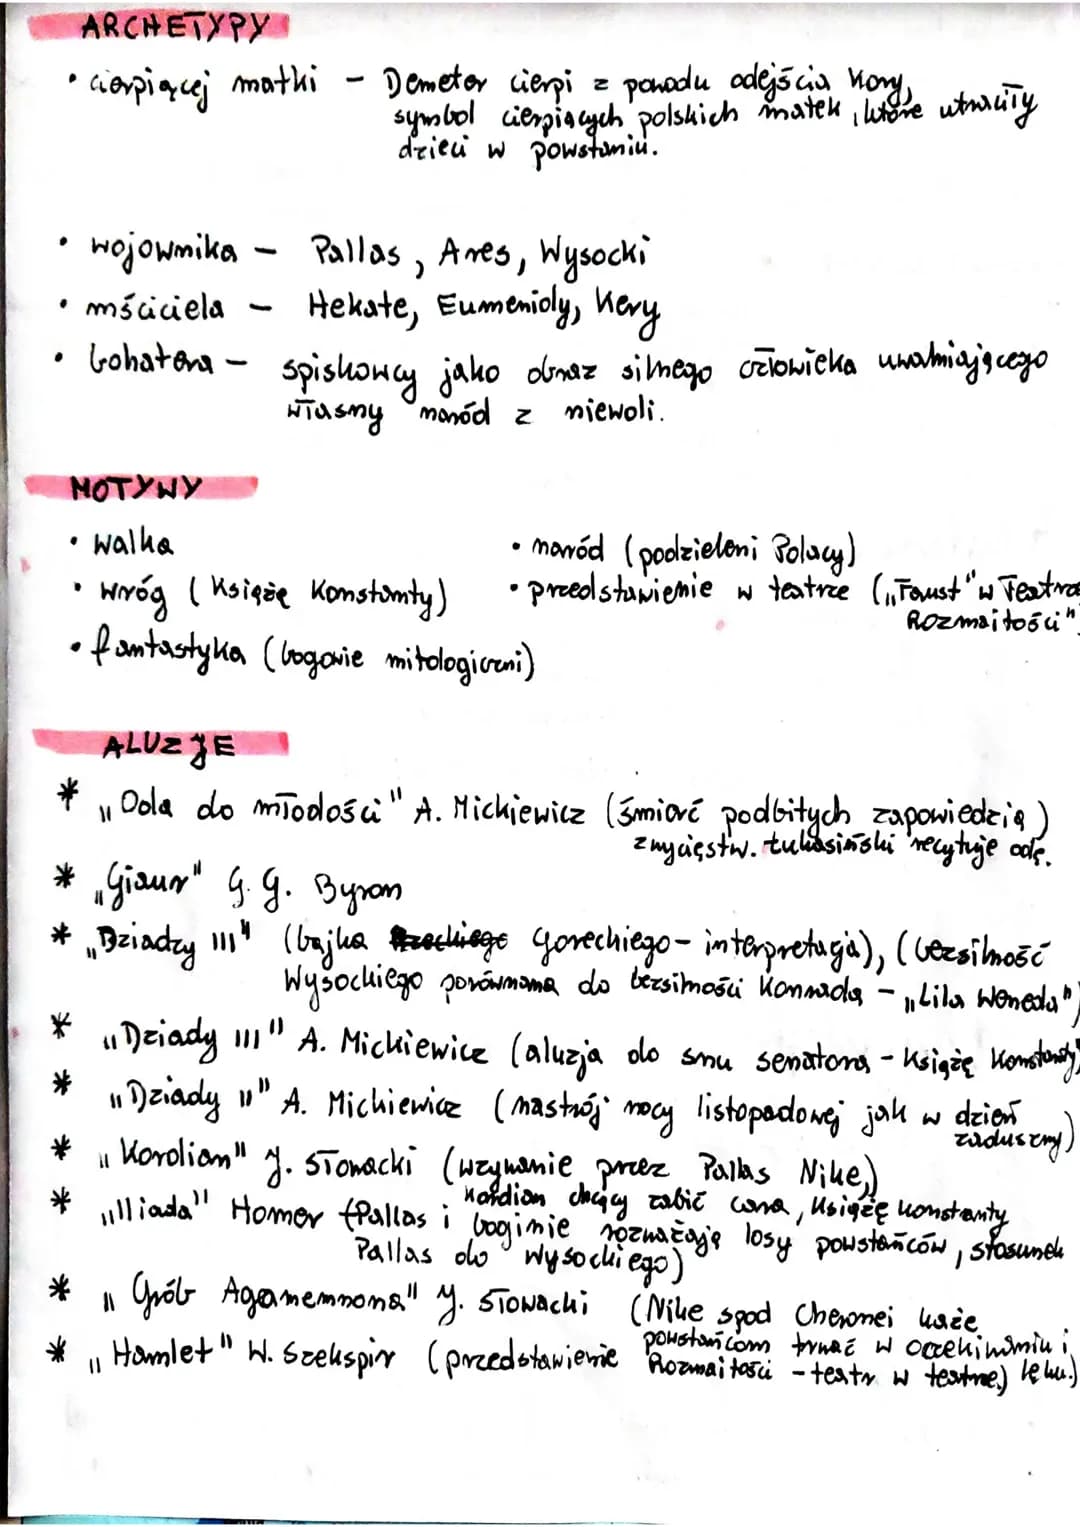 ARCHETYPY
• cierpiącej matki – Demeter cierpi z powodu odejścia Kory,
symbol cierpiących polskich matek, które utraciły
dzieci w powstaniu.
• wojownika – Pallas, Ares, Wysocki
• mściciela – Hekate, Eumenidy, Kery
• bohatera – spiskowcy jako obraz silnego człowieka uwalniającego
własny naród z niewoli.
MOTYWY
• walka
• naród (podzieleni Polacy)
• wróg (Książę Konstanty)
• przedstawienie w teatrze („Faust" w Teatrze
Rozmaitości"
• fantastyka (bogowie mitologiczni)
ALUZJE
* „Oda do młodości" A. Mickiewicz (śmierć podbitych zapowiedzią)
zwycięstw. Łukasiński recytuje odę.
* „Giaur" G. G. Byron
* „Dziadzy III" (bajka Goreckiego – interpretacja), (bezsilność
Wysockiego porównana do bezsilności Konrada – „Lila Weneda")
* „Dziady III" A. Mickiewicz (aluzja do snu senatora – Książę Konstanty)
* „Dziady II" A. Mickiewicz (nastrój nocy listopadowej jak w dzień
zaduszny)
* „Kordian" J. Słowacki (wzywanie przez Pallas Nike,)
Kordian chcący zabić cara, Książę Konstanty
* „Iliada" Homer (Pallas i boginie rozważają losy powstańców, stosunek
Pallas do Wysockiego)
* „Grób Agamemnona" J. Słowacki (Nike spod Cheronei każe
powstańcom trwać w oczekiwaniu i
lęku.)
* „Hamlet" W. Szekspir (przedstawienie Rozmaitości – teatr w teatrze)